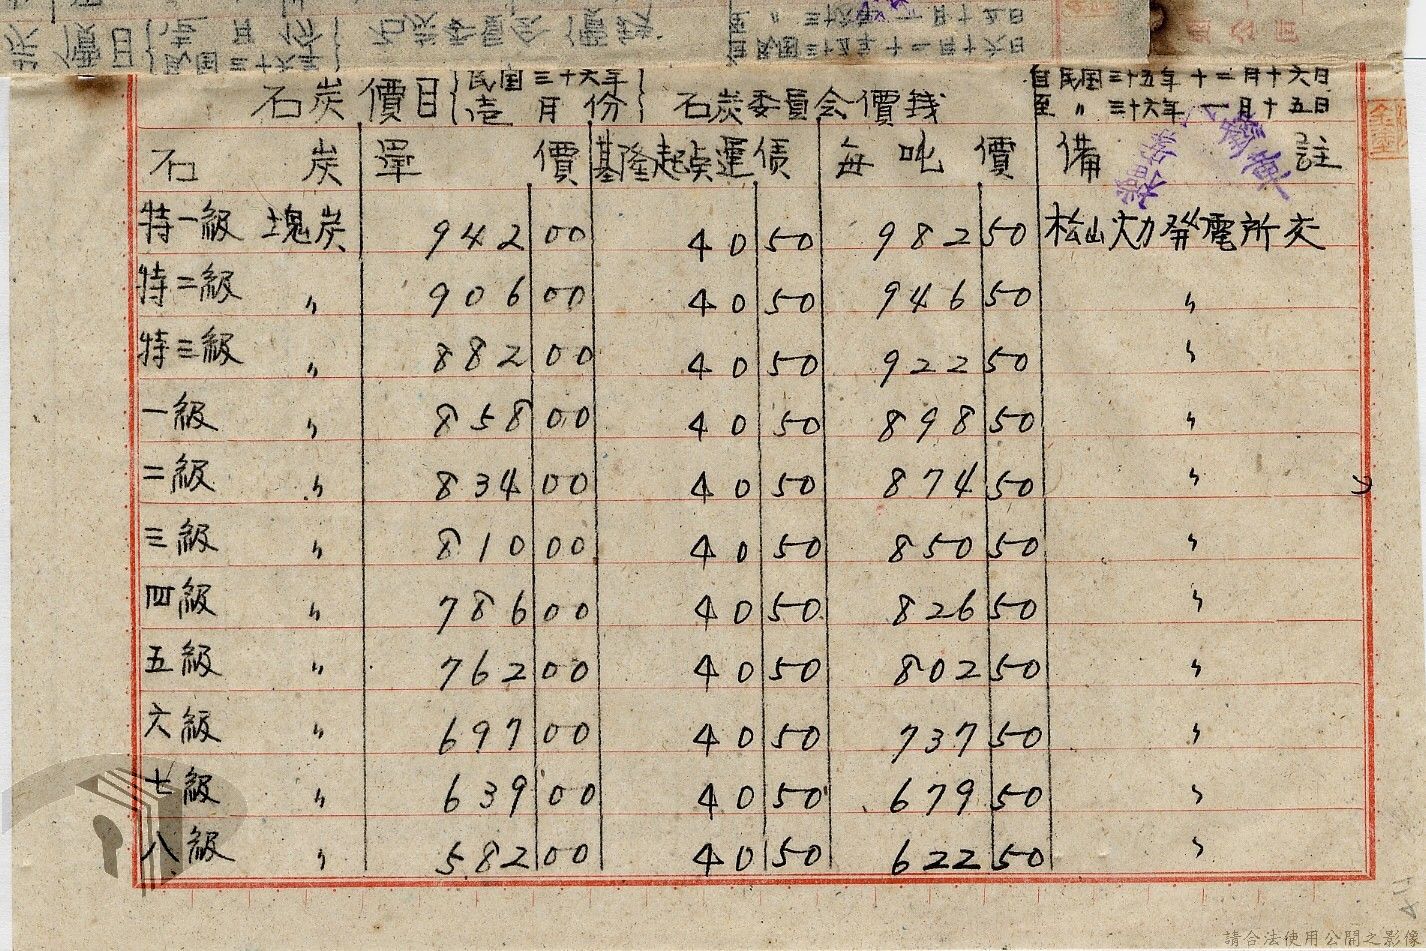 石炭價目{民国三十六年壹月份} 石炭委員会價錢 自民国三十五年十二月十六日
至〃三十六年一月十五日
石炭 單價 基隆起卖運債 每吡價 備註
特一級 塊炭 942 00 40 50 982 50 松山火力発電所交
特二級 〃 906 00 40 50 946 50 〃
特三級 〃 882 00 40 50 922 50 〃
一級 〃 858 00 40 50 898 50 〃
二級 〃 834 00 40 50 874 50 〃
三級 〃 810 00 40 50 850 50 〃
四級 〃 786 00 40 50 826 50 〃
五級 〃 762 00 40 50 802 50 〃
六級 〃 697 00 40 50 737 50 〃
七級 〃 639 00 40 50 679 50 〃
八級 〃 582 00 40 50 622 50 〃
請合法使用公開之影像